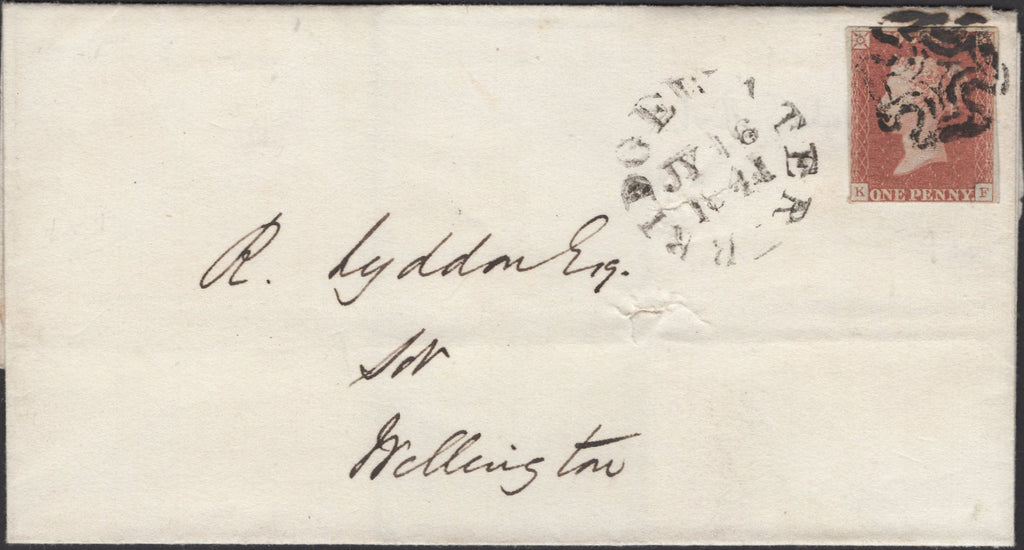 BRIDGEWATER
JY 16
1841
K ONE PENNY F
R. Lyddon Esq.
Solr
Wellington